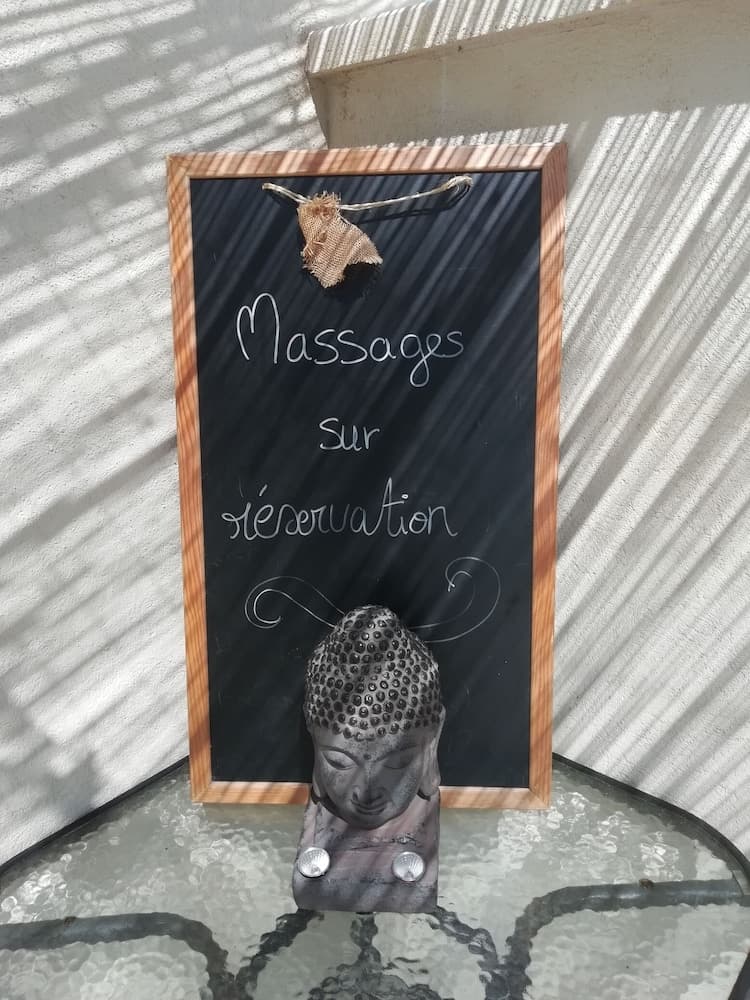 Massages
sur
réservation